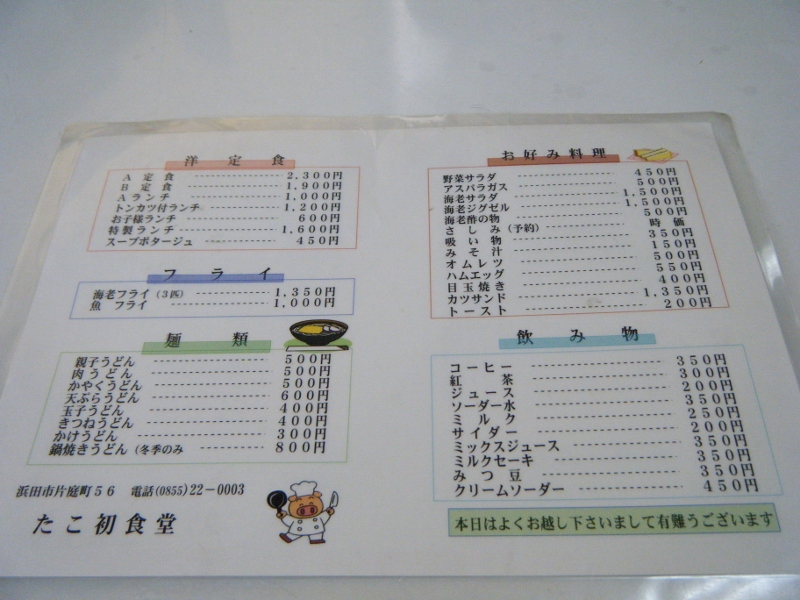 洋定食
A定食 2,300円
B定食 1,900円
Aランチ 1,000円
トンカツ付ランチ 1,200円
お子様ランチ 600円
特製ランチ 1,600円
スープポタージュ 450円
フライ
海老フライ(3匹) 1,350円
魚フライ 1,000円
麺類
親子うどん 500円
肉うどん 500円
かやくうどん 500円
天ぷらうどん 600円
玉子うどん 400円
きつねうどん 400円
かけうどん 300円
鍋焼きうどん(冬季のみ 800円
浜田市片庭町56 電話(0855)22-0003
たこ初食堂
お好み料理
野菜サラダ 450円
アスパラガス 500円
海老サラダ 1,500円
海老ジグゼル 1,500円
海老酢の物 500円
さしみ(予約) 時価
吸い物 350円
みそ汁 150円
オムレツ 500円
ハムエッグ 550円
目玉焼き 400円
カツサンド 1,350円
トースト 200円
飲み物
コーヒー 350円
紅茶 300円
ジュース 200円
ソーダー水 350円
ミルク 250円
サイダー 200円
ミックスジュース 350円
ミルクセーキ 350円
みつ豆 350円
クリームソーダー 450円
本日はよくお越し下さいまして有難うございます